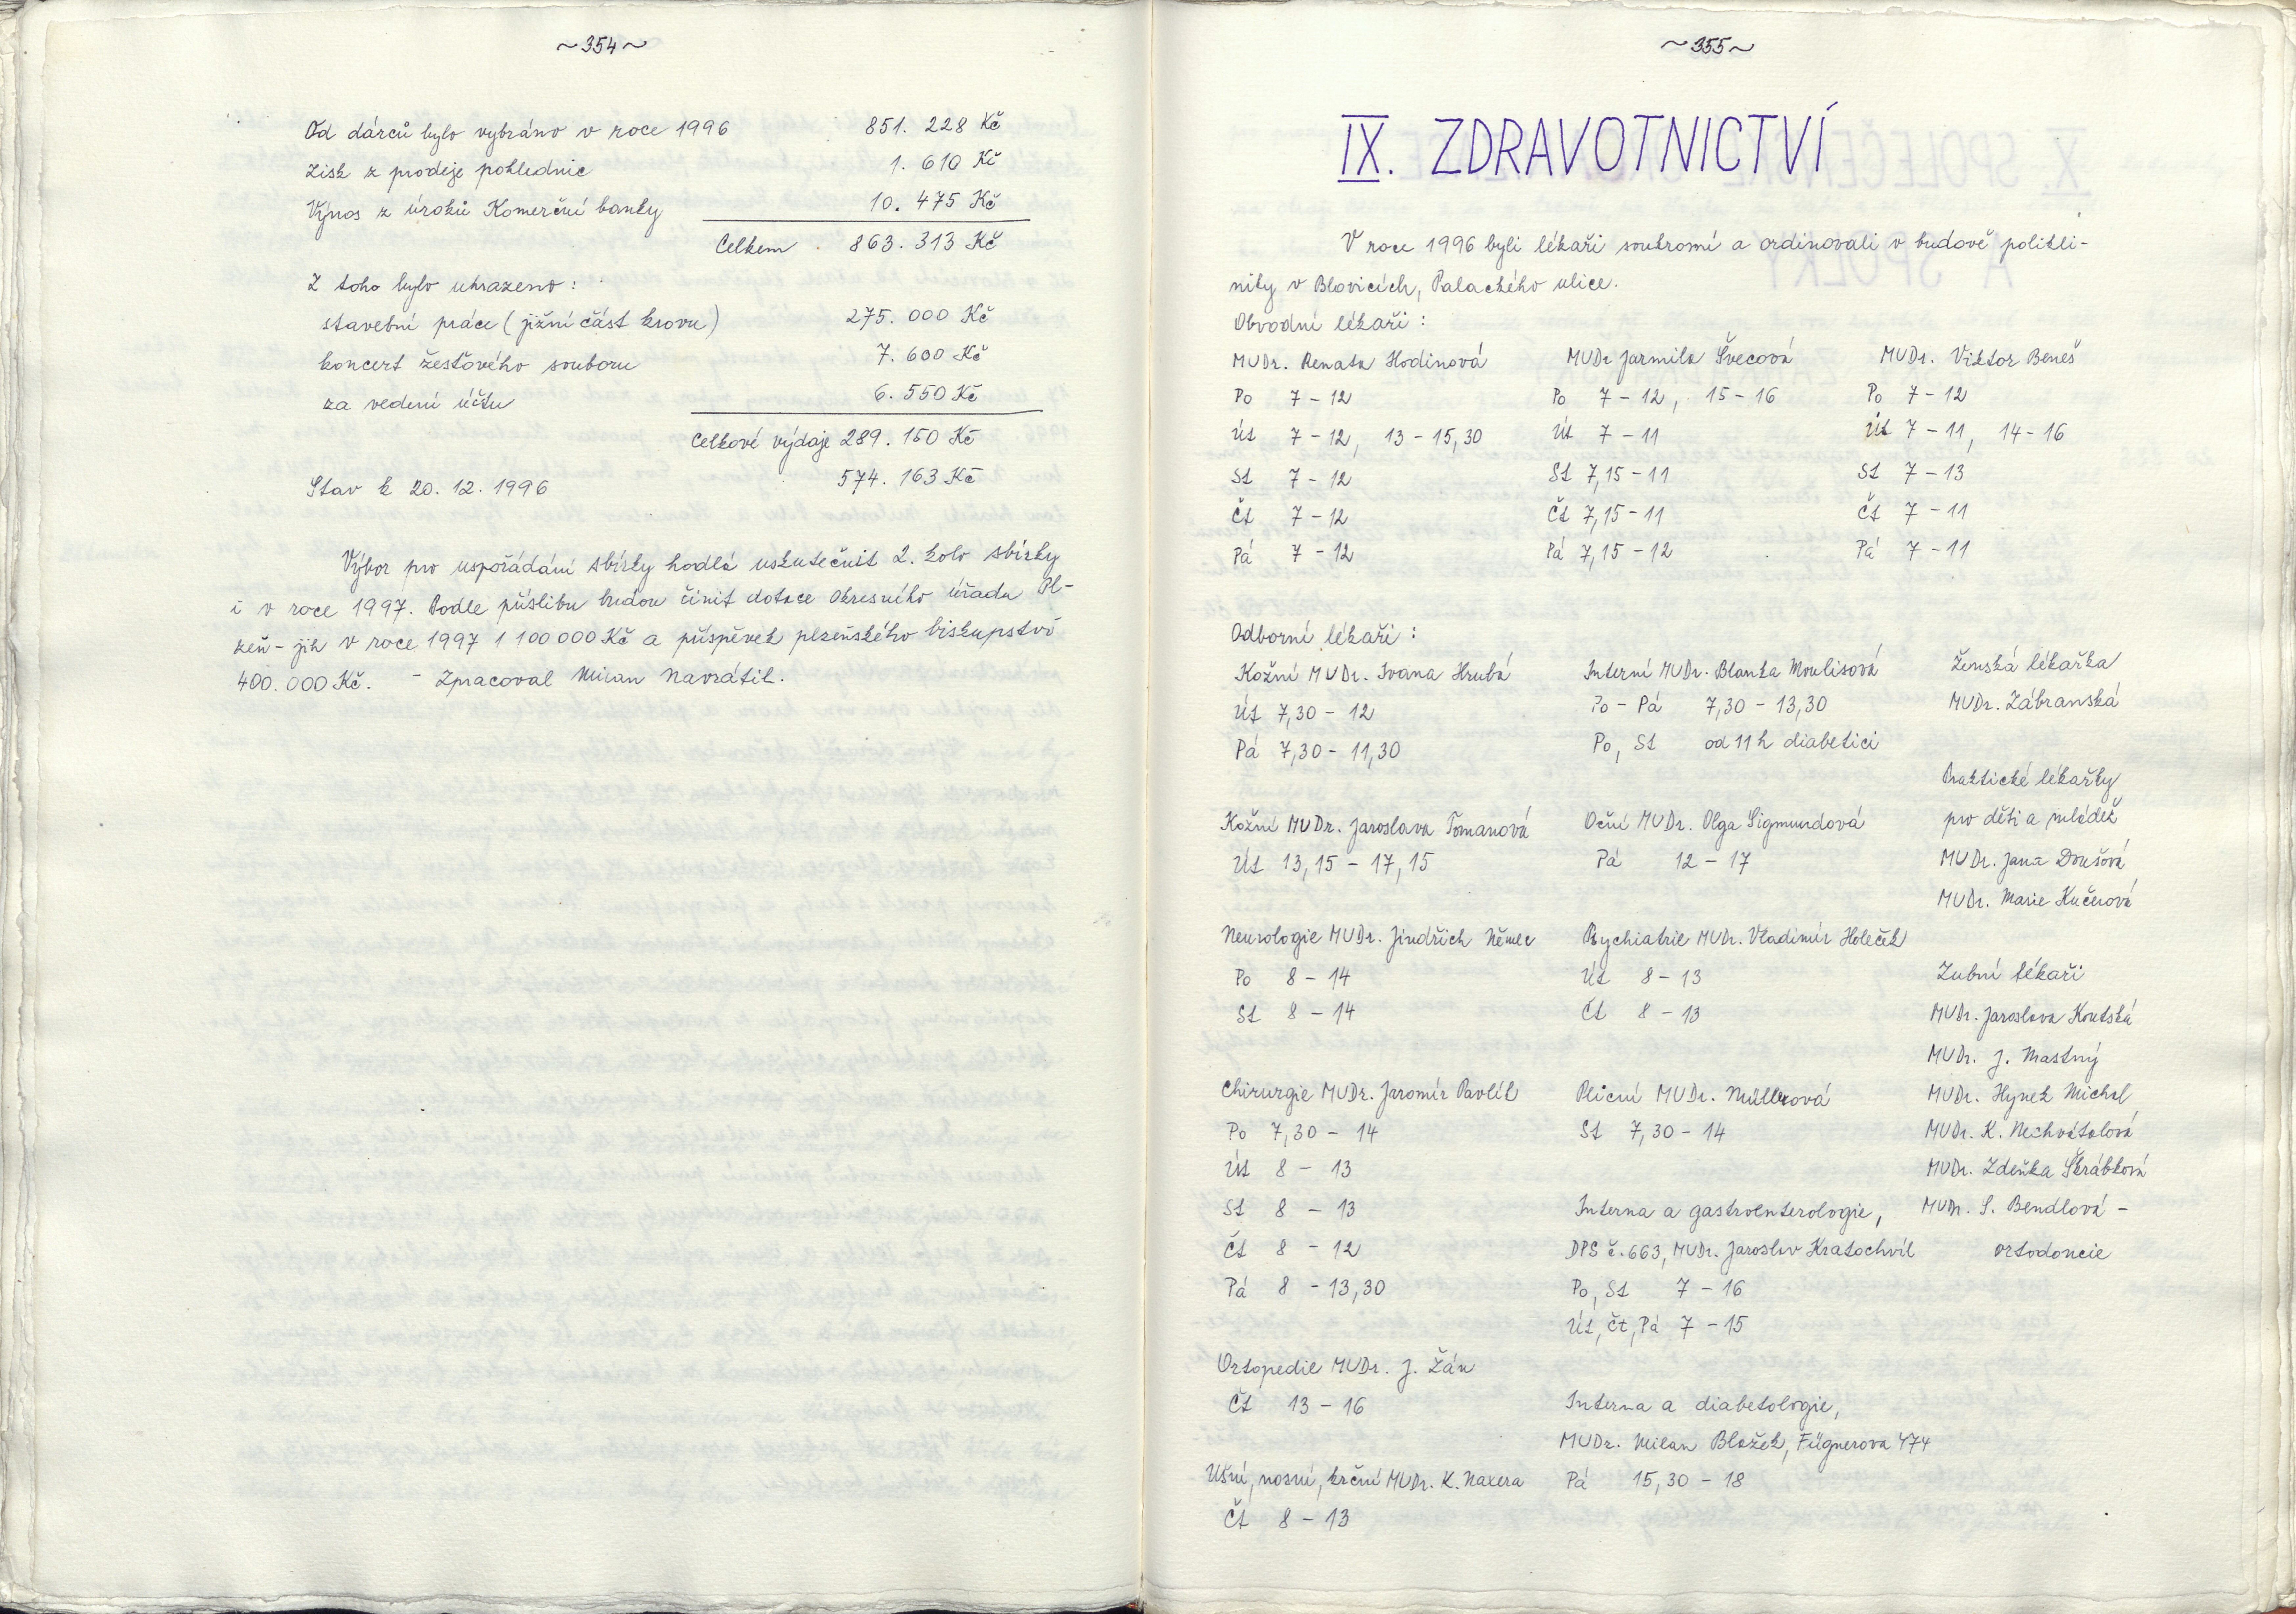 ~354~
Od dárců bylo vybráno v roce 1996 851. 228 Kč
zisk z prodeje pohlednic 1. 610 Kč
Výnos z úroků Komerční banky 10. 475 Kč
Celkem 863. 313 Kč
Z toho bylo uhrazeno:
stavební práce (jižní část krovu) 275. 000 Kč
koncert žesťového souboru 7. 600 Kč
za vedení účtu 6. 550 Kč
Celkové výdaje 289. 150 Kč
Stav k 20. 12. 1996 574. 163 Kč
Výbor pro uspořádání sbírky hodlá uskutečnit 2. kolo sbírky
i v roce 1997. Podle příslibu budou činit dotace Okresního úřadu Pl-
zeň - jih v roce 1997 1 100 000 Kč a příspěvek plzeňského biskupství
400. 000 Kč. - Zpracoval Milan Navrátil.
~355~
IX. ZDRAVOTNICTVÍ
V roce 1996 byli lékaři soukromí a ordinovali v budově polikli-
niky v Blovicích, Palackého ulice.
Obvodní lékaři:
MUDr. Renata Hodinová MUDr Jarmila Švecová MUDr. Viktor Beneš
Po 7 - 12 Po 7 - 12, 15 - 16 Po 7 - 12
Út 7 - 12, 13 - 15,30 Út 7 - 11 Út 7 - 11, 14 - 16
St 7 - 12 St 7,15 - 11 St 7 - 13
Čt 7 - 12 Čt 7,15 - 11 Čt 7 - 11
Pá 7 - 12 Pá 7,15 - 12 Pá 7 - 11
Odborní lékaři:
Kožní MUDr. Ivana Hrubá
Út 7,30 - 12
Pá 7,30 - 11,30
Kožní MUDr. Jaroslava Tomanová
Út 13,15 - 17,15
Neurologie MUDr. Jindřich Němec
Po 8 - 14
St 8 - 14
Chirurgie MUDr. Jaromír Pavlík
Po 7,30 - 14
Út 8 - 13
St 8 - 13
Čt 8 - 12
Pá 8 - 13,30
Ortopedie MUDr. J. Žán
Čt 13 - 16
Ušní, nosní, krční MUDr. K. Naxera
Čt 8 - 13
Interní MUDr. Blanka Moulisová
Po - Pá 7,30 - 13,30
Po, St od 11 h diabetici
Oční MUDr. Olga Sigmundová
Pá 12 - 17
Psychiatrie MUDr. Vladimír Holeček
Út 8 - 13
Čt 8 - 13
Plicní MUDr. Müllerová
St 7,30 - 14
Interna a gastroenterologie,
DPS č. 663, MUDr. Jaroslav Kratochvíl
Po, St 7 - 16
Út, Čt, Pá 7 - 15
Interna a diabetologie,
MUDr. Milan Blažek, Fügnerova 474
Pá 15,30 - 18
Ženská lékařka
MUDr. Zábranská
Praktické lékařky
pro děti a mládež
MUDr. Jana Doušová
MUDr. Marie Kučerová
Zubní lékaři
MUDr. Jaroslava Koutská
MUDr. J. Mastný
MUDr. Hynek Michal
MUDr. K. Nechvátalová
MUDr. Zdeňka Škrábková
MUDr. S. Bendlová -
ortodoncie